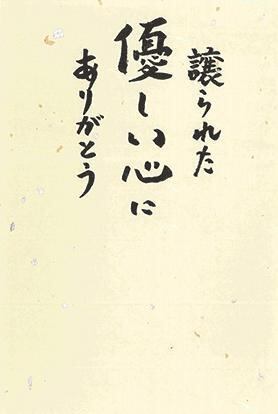 譲られた
優しい心に
ありがとう